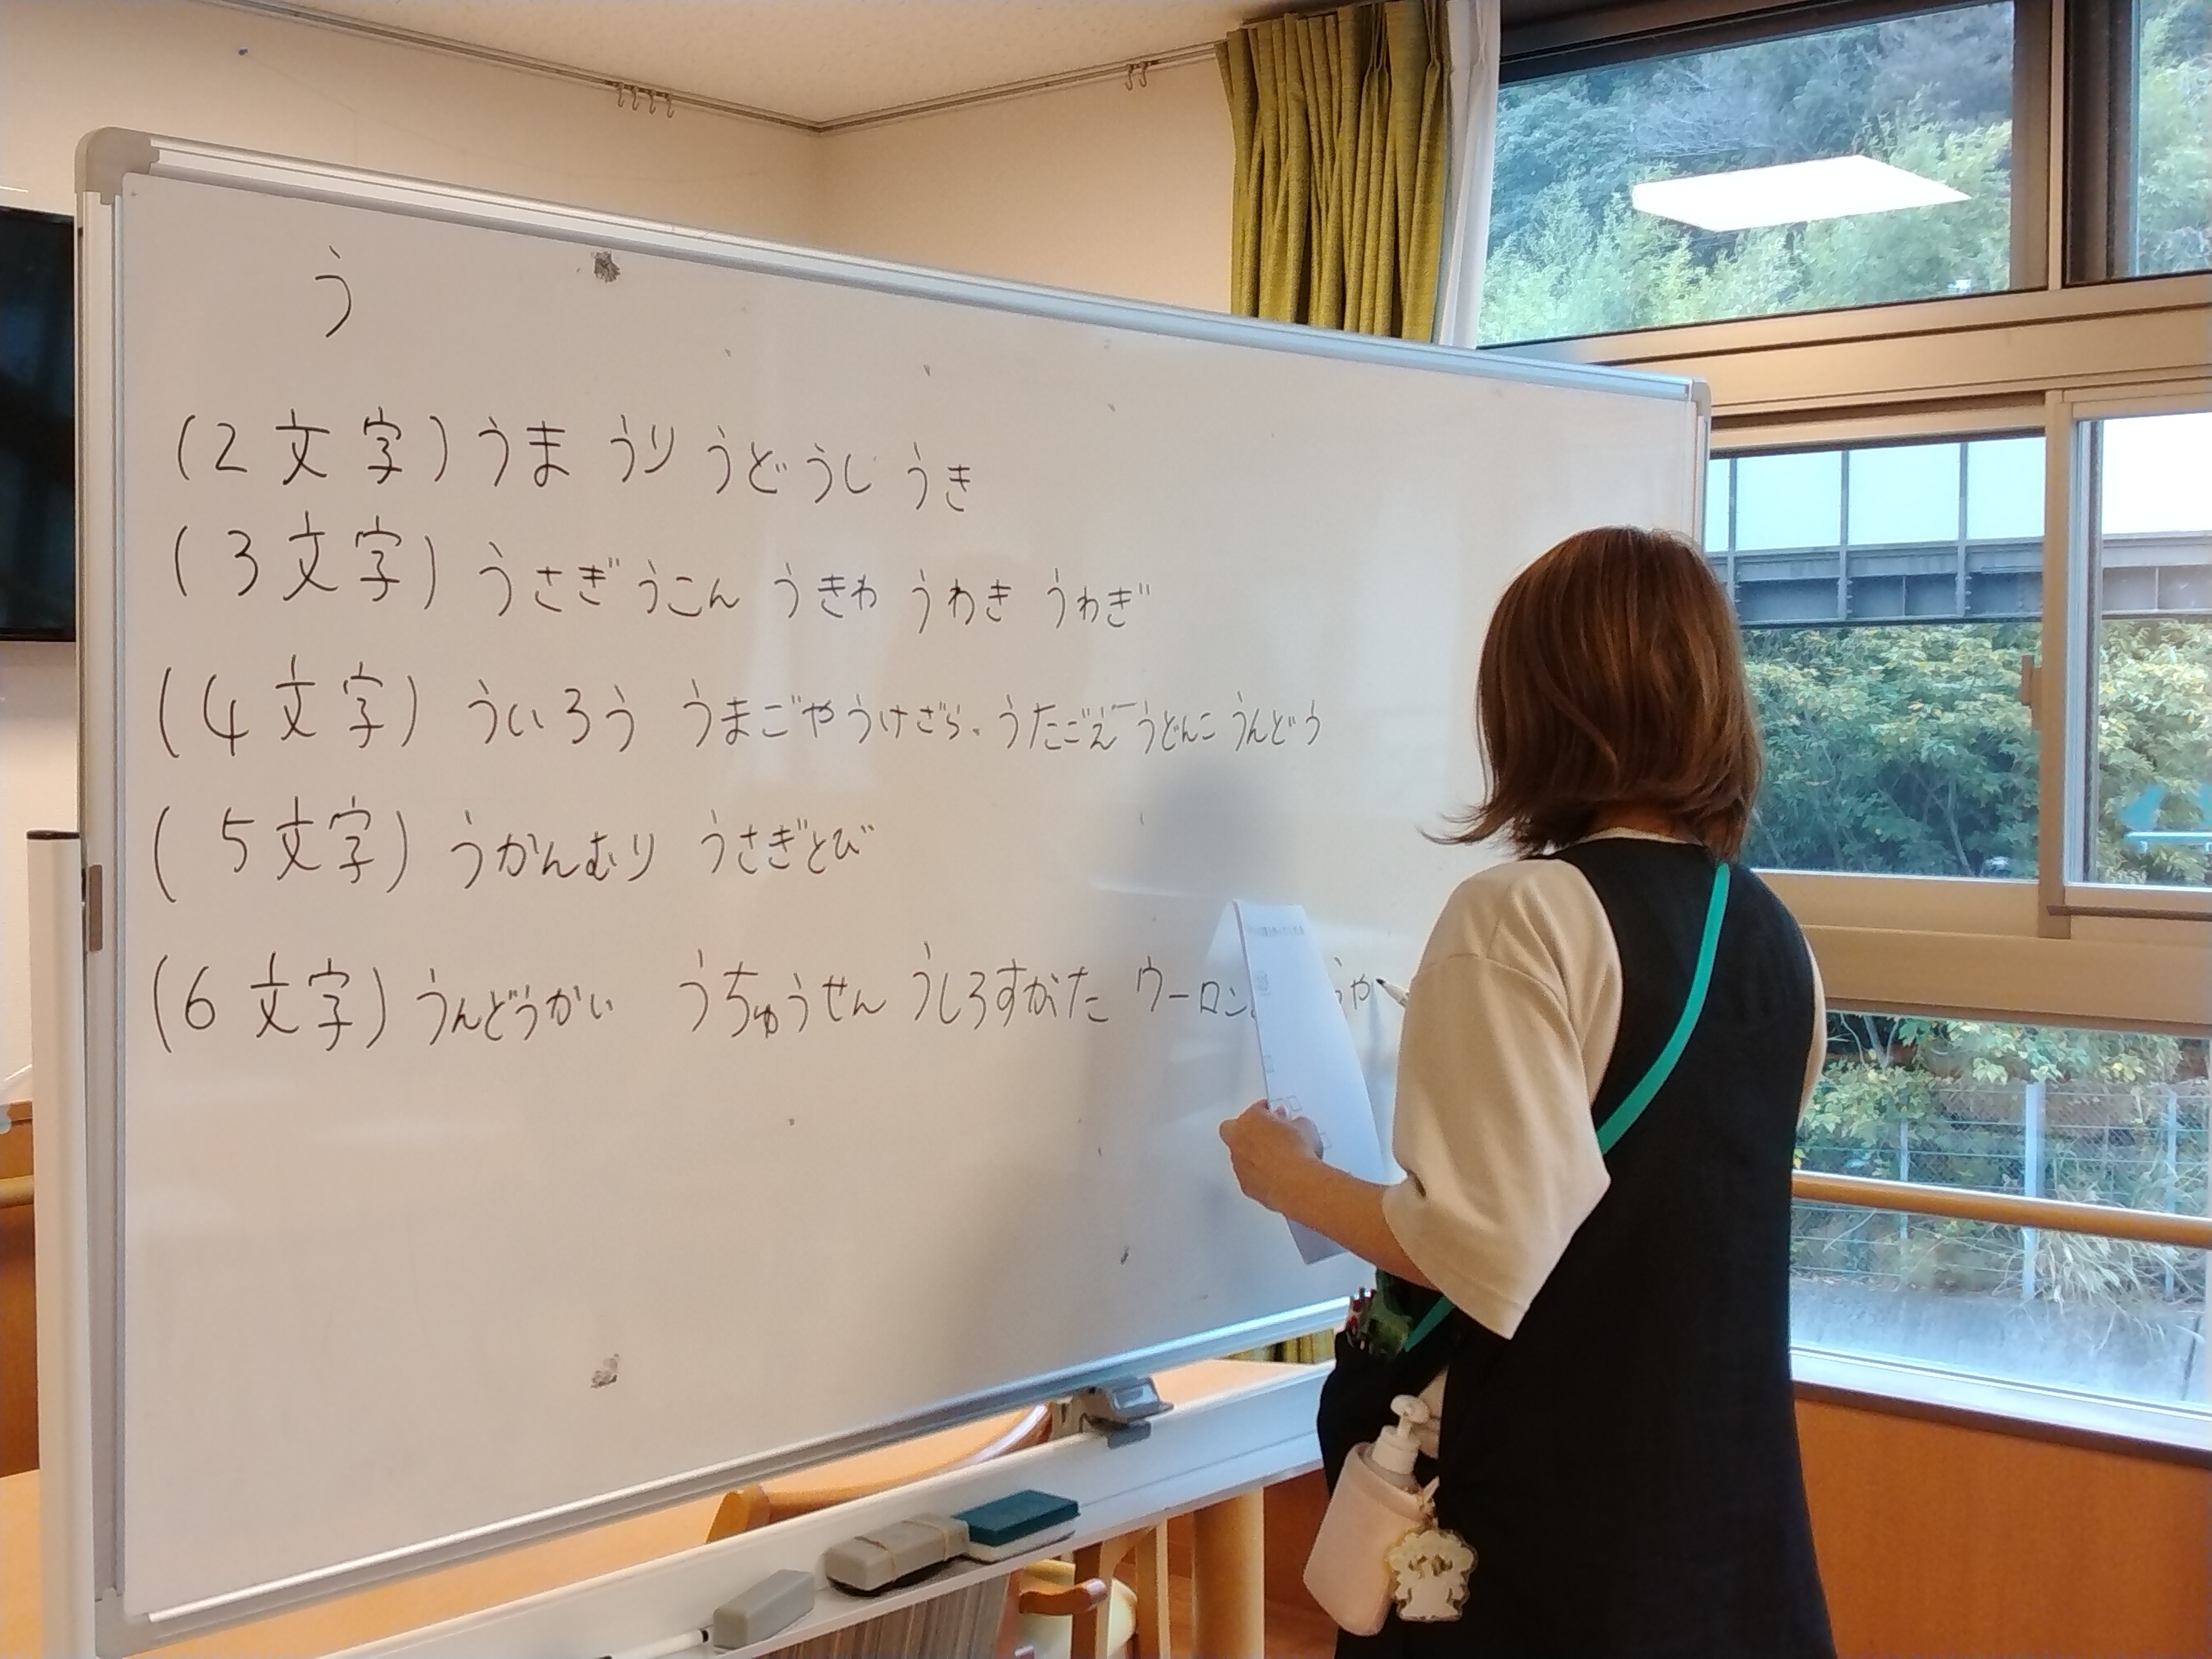 う
(2文字) うま うり うど うし うき
(3文字) うさぎ うこん うきわ うわき うわぎ
(4文字) ういろう うまごや うけざら、うたごえ うどんこ うんどう
(5文字) うかんむり うさぎとび
(6文字) うんどうかい うちゅうせん うしろすがた ウーロン